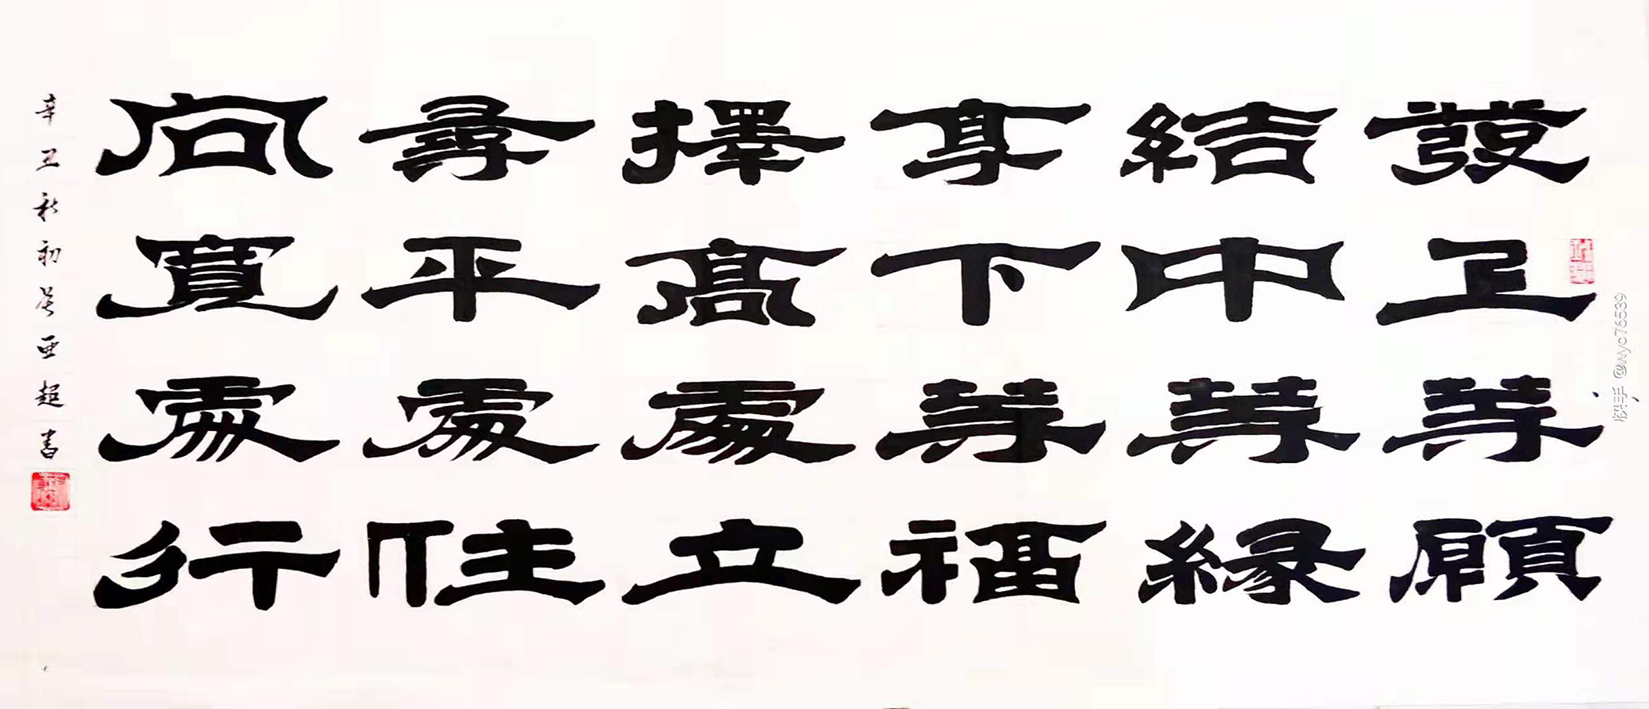 發上等願
結中等緣
享下等福
擇高處立
尋平處住
向寬處行
辛丑秋初吴亚超書
快手 @wyc76539